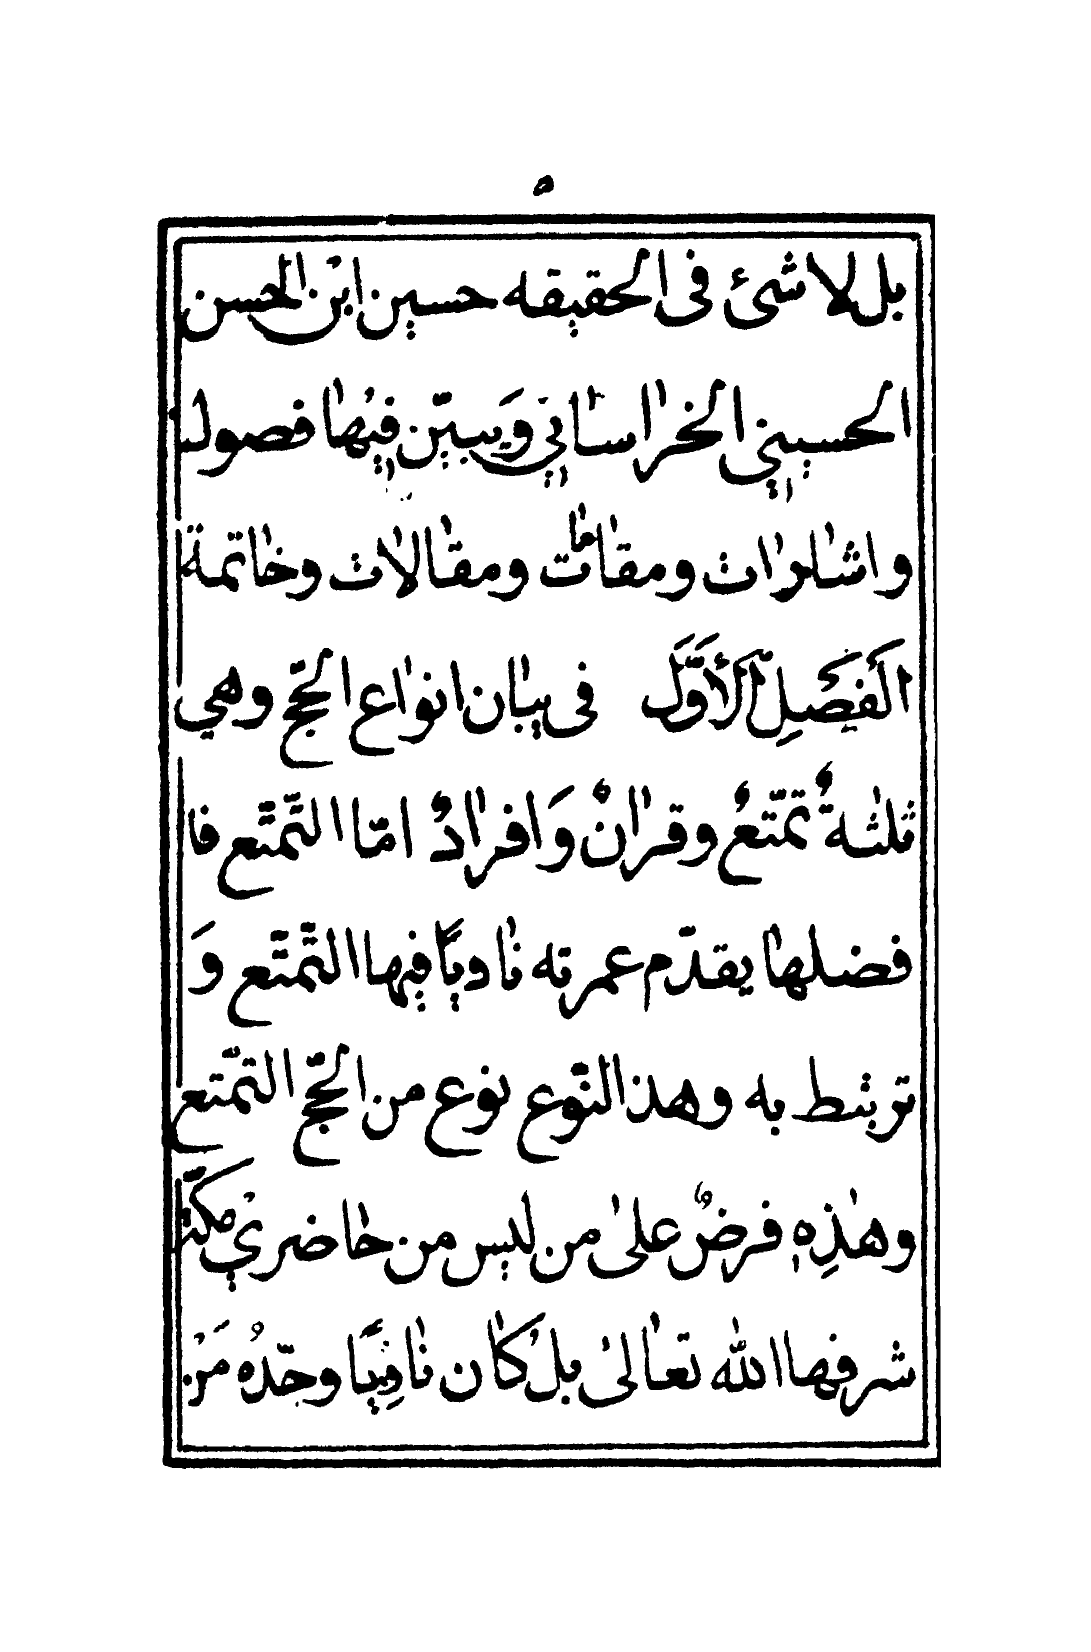 ٥
بل لا شئ فى الحقيقه حسين ابن الحسن
الحسيني الخراساني وَيبيّن فيها فصولا
واشارات ومقامات ومقالات وخاتمة
اَلفَصَلِ اَلأَوَّلَ فى بيان انواع الحجّ وهي
ثلثةٌ تمتّعٌ وقرانٌ وَافرادٌ امّا التّمتّع فا
فضلها يقدّم عمرته ناوياً فيها التّمتّع وَ
ترتبط به وهذ النّوع نوع من الحجّ التمتّع
وهٰذِهٖ فرضٌ علىٰ من ليس من حاضري مكّة
شرفها الله تعالىٰ بل كان نافِياً وحّدهُ مَن